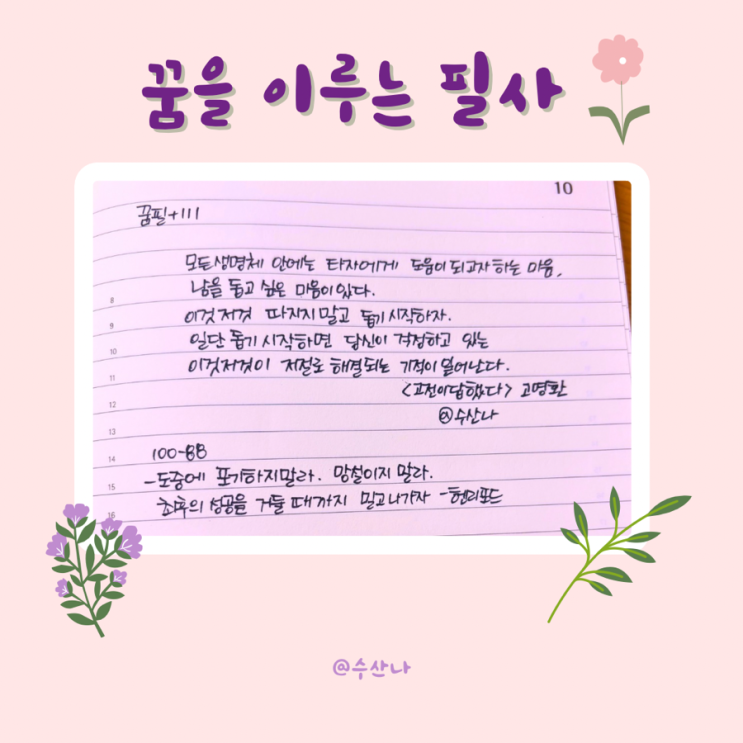 꿈을 이루는 필사
10
꿈필+111
모든생명체 안에는 타자에게 도움이되고자하는 마음,
남을 돕고 싶은 마음이있다.
이것저것 따지지말고 돕기시작하자.
일단 돕기시작하면 당신이 걱정하고 있는
이것저것이 저절로 해결되는 기적이일어난다.
<고전이답했다> 고명환
@수산나
100-88
-도중에 포기하지말라. 망설이지 말라.
최후의 성공을 거둘 때까지 밀고나가자 -헨리포드
8
9
10
11
12
13
14
15
16
@수산나